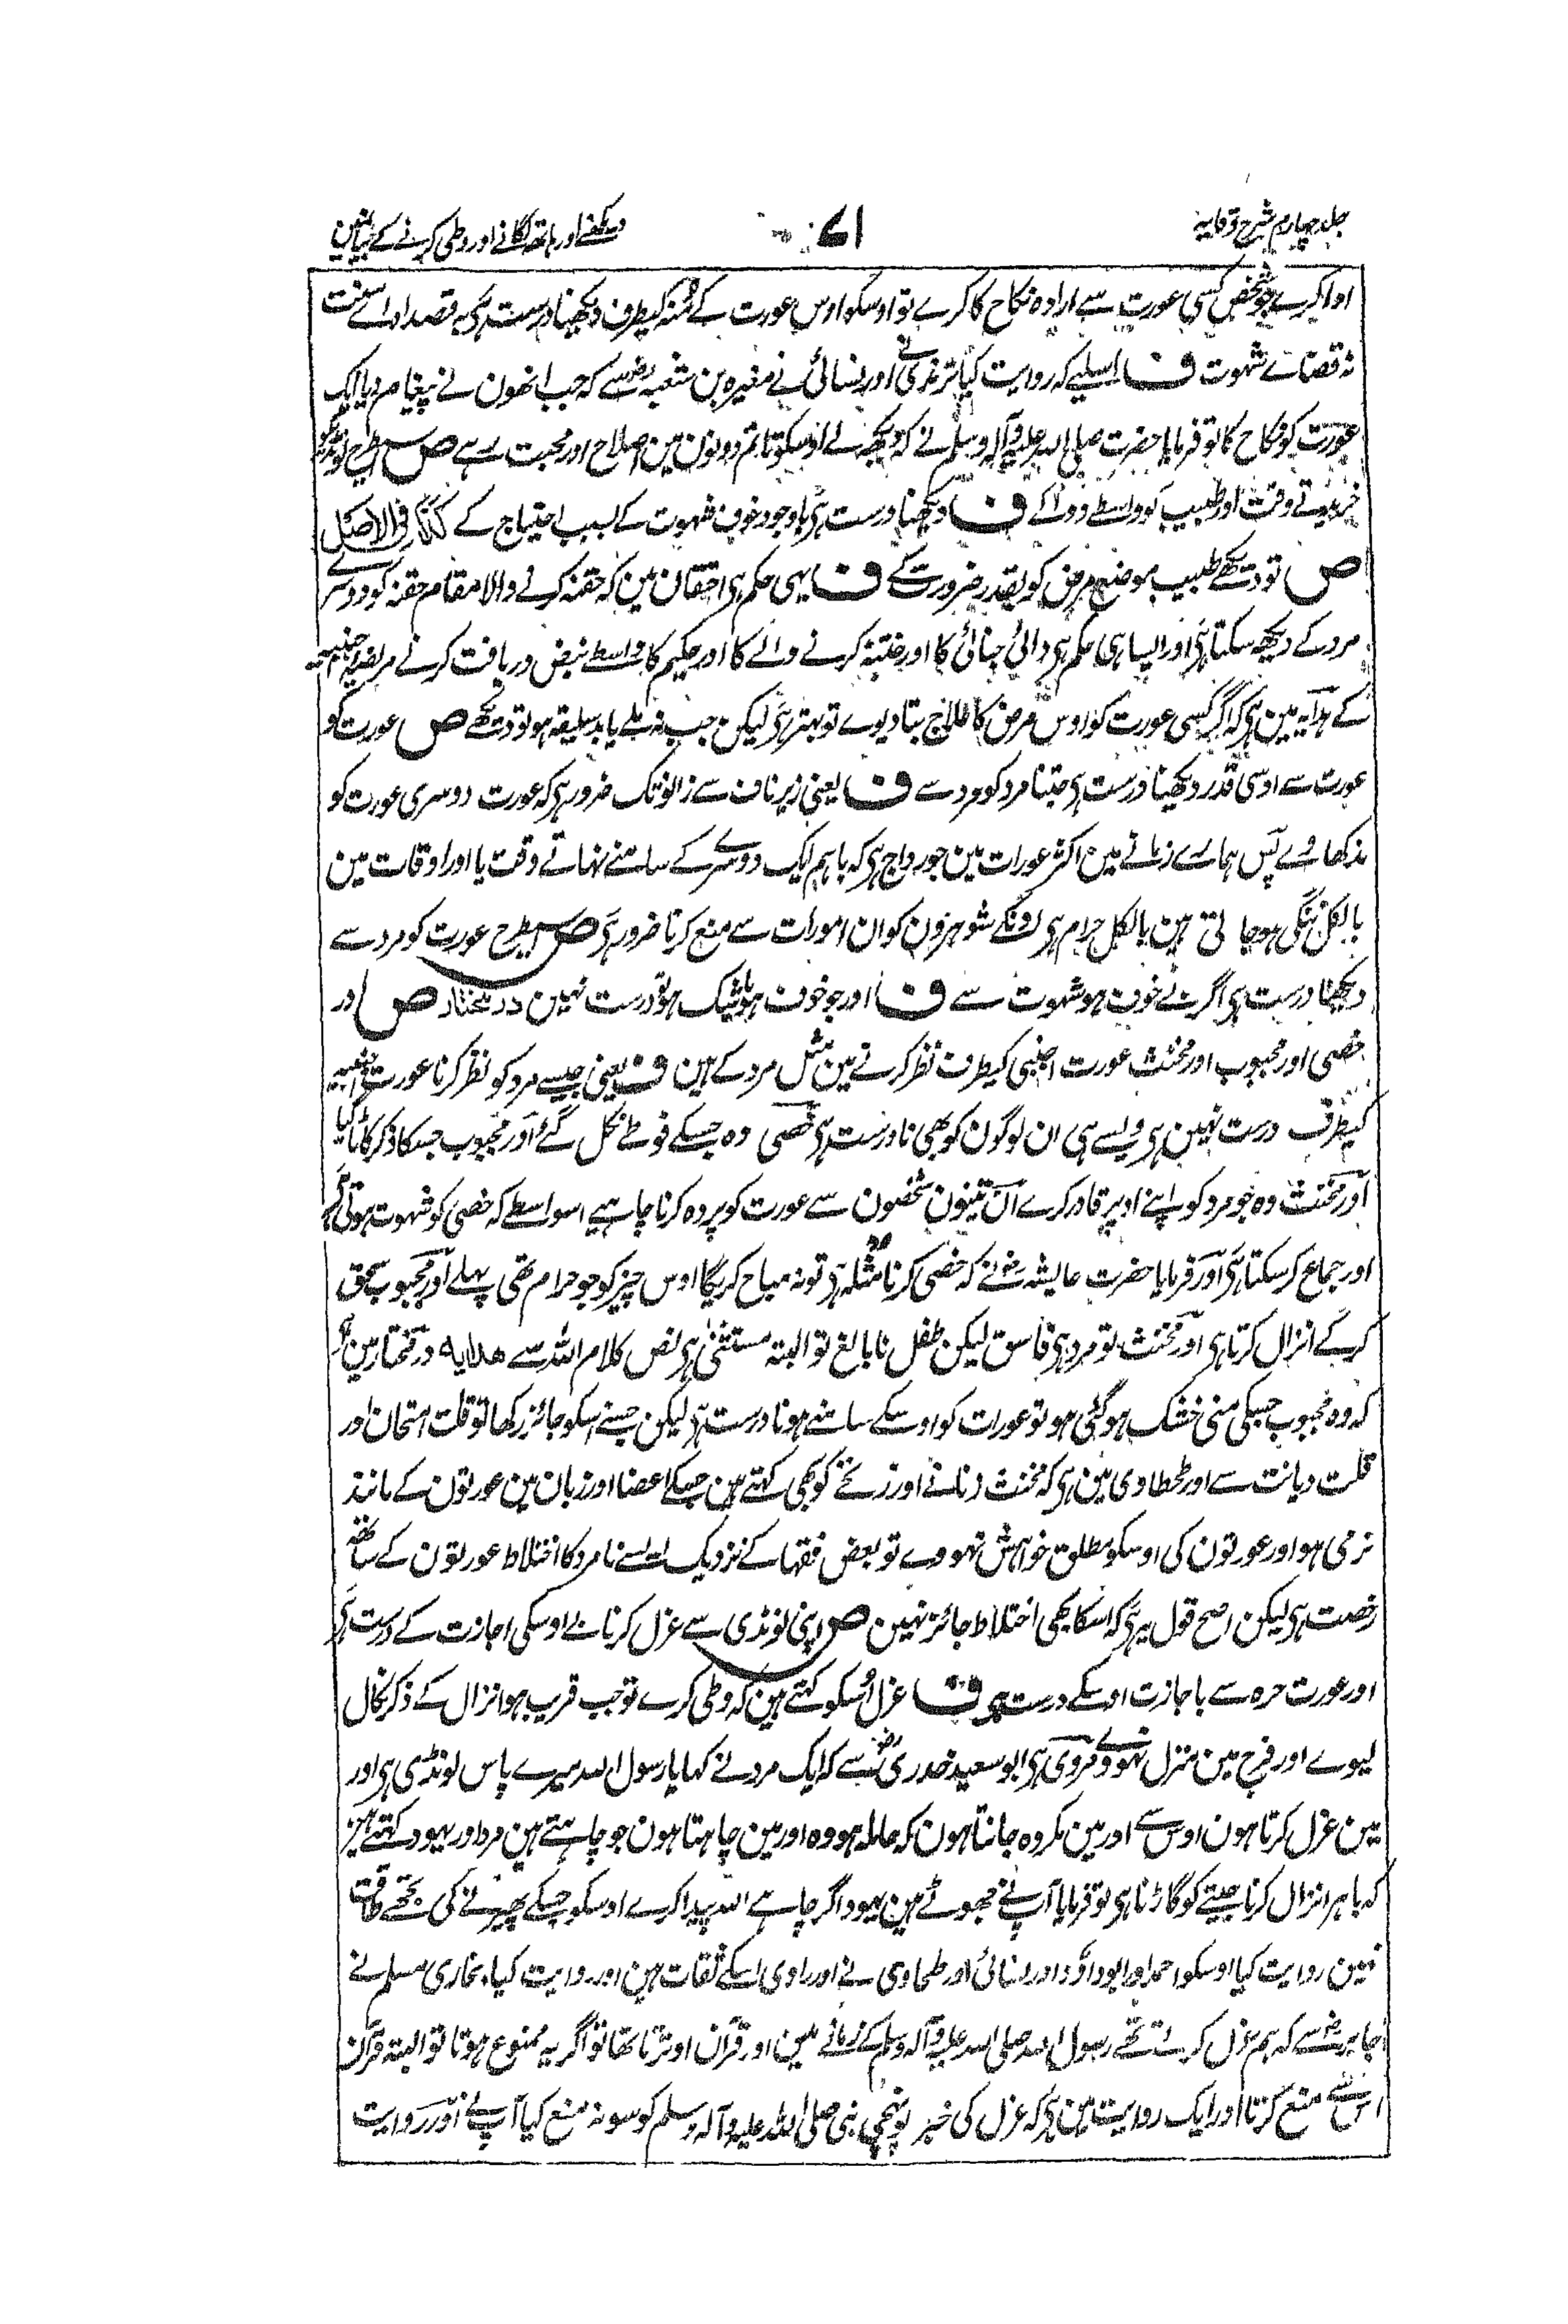 جلد چہارم شرح وقایہ
۷۱
دیکھنے اور ہاتھ لگانے اور وطی کرنے کے بیانمین
ادا کرے جو شخص کسی عورت سے ارادہ نکاح کا کرے تو اوسکو اوس عورت کے منہ کیطرف دیکھنا درست ہی بہ قصد اداے سنت
نہ قضاے شہوت ف اسلیے کہ روایت کیا ترمذی اور نسائی نے مغیرہ بن شعبہ رضہ سے کہ جب انھون نے پیغام دیا ایک
عورت کو نکاح کا تو فرمایا حضرت صلی اللہ علیہ وآلہ وسلم نے کہ دیکھ لے اوسکو تا تم دونون مین اصلاح اور محبت رہے ص اسیطرح لونڈیکو
خریدتے وقت اور طبیب کو واسطے دوا کے ف دیکھنا درست ہی باوجود خوف شہوت کے بسبب احتیاج کے کذا فی الاصل
ص تو دیکھے طبیب موضع مرض کو بقدر ضرورت کے ف یہی حکم ہی احتقان مین کہ حقنہ کرنے والا مقام حقنہ کو دوسرے
مرد کے دیکھ سکتا ہی اور ایسا ہی حکم ہی دائی جنائی کا اور ختنہ کرنے والے کا اور حکیم کا واسطے نبض دریافت کرنے مریضہ اجنبیہ
کے ہدایہ مین ہی کہ اگر کسی عورت کو اوس مرض کا علاج بتا دیوے تو بہتر ہی لیکن جب نہ ملے یا بد سلیقہ ہو تو دیکھے ص عورت کو
عورت سے اوسی قدر دیکھنا درست ہی جتنا مرد کو مرد سے ف یعنی زیر ناف سے زانو تک ضرور ہی کہ عورت دوسری عورت کو
ندکھاوے پس ہمارے زمانے مین اکثر عورات مین جو رواج ہی کہ باہم ایک دوسرے کے سامنے نہاتے وقت یا اور اوقات مین
بالکل ننگی ہو جاتی ہین بالکل حرام ہی اونکے شوہرون کو ان امورات سے منع کرنا ضرور ہی ص اسیطرح عورت کو مرد سے
دیکھنا درست ہی اگر بے خوف ہو شہوت سے ف اور جو خوف ہو یا شک ہو تو درست نہین در مختار ص اور
خصی اور مجبوب اور مخنث عورت اجنبی کیطرف نظر کرنے مین مثل مرد کے ہین ف یعنی جیسے مرد کو نظر کرنا عورت اجنبیہ
کیطرف درست نہین ہی ویسے ہی ان لوگون کو بھی نادرست ہی خصی وہ جسکے فوطے نکل گئے اور مجبوب جسکا ذکر کاٹا گیا
اور مخنث وہ جو مرد کو اپنے اوپر قادر کرے ان تینون شخصون سے عورت کو پردہ کرنا چاہیے اسواسطے کہ خصی کو شہوت ہوتی ہی
اور جماع کر سکتا ہی اور فرمایا حضرت عایشہ رضہ نے کہ خصی کرنا مثلہ ہی تو نہ مباح کریگا اوس چیز کو جو حرام تھی پہلے اور مجبوب سحق
کر کے انزال کرتا ہی اور مخنث تو مرد ہی فاسق لیکن طفل نابالغ تو البتہ مستثنیٰ ہی نص کلام اللہ سے ھدایہ در مختار مین ہی
کہ وہ مجبوب جسکی منی خشک ہو گئی ہو تو عورات کو اوسکے سامنے ہونا درست ہی لیکن جسنے اسکو جائز رکھا تو قلت امتحان اور
قلت دیانت سے اور طحطاوی مین ہی کہ مخنث زنانے اور زنخے کو بھی کہتے ہین جسکے اعضا اور زبان مین عورتون کے مانند
نرمی ہو اور عورتون کی اوسکو مطلق خواہش نہووے تو بعض فقہا کے نزدیک ایسے نامرد کا اختلاط عورتون کے ساتھ
رخصت ہی لیکن اصح قول یہ ہی کہ اسکا بھی اختلاط جائز نہین ص اپنی لونڈی سے عزل کرنا بے اوسکی اجازت کے درست ہی
اور عورت حرہ سے باجازت اوسکے درست ہی ف عزل اوسکو کہتے ہین کہ وطی کرے تو جب قریب ہو انزال کے ذکر نکال
لیوے اور فرج مین منزل نہووے مروی ہی ابو سعید خدری رضہ سے کہ ایک مرد نے کہا یا رسول اللہ میرے پاس لونڈی ہی اور
مین عزل کرتا ہون اوس سے اور مین مکروہ جانتا ہون کہ حاملہ ہو وہ اور مین چاہتا ہون جو چاہتے ہین مرد اور یہود کہتے ہین
کہ باہر انزال کرنا جیتے کو گاڑنا ہی تو فرمایا آپ نے جھوٹے ہین یہود اگر چاہے اللہ پیدا کرے اوسکو جسکے پھیرنے کی تجھے طاقت
نہین روایت کیا اوسکو احمد اور ابوداؤد اور نسائی اور طحاوی نے اور راوی اسکے ثقات ہین اور روایت کیا بخاری مسلم نے
جابر رضہ سے کہ ہم عزل کرتے تھے رسول اللہ صلی اللہ علیہ وآلہ وسلم کے زمانے مین اور قرآن اوترتا تھا تو اگر یہ ممنوع ہوتا تو البتہ قرآن
اس سے منع کرتا اور ایک روایت مین ہی کہ عزل کی خبر پونہچی نبی صلی اللہ علیہ وآلہ وسلم کو سو نہ منع کیا آپ نے اور روایت